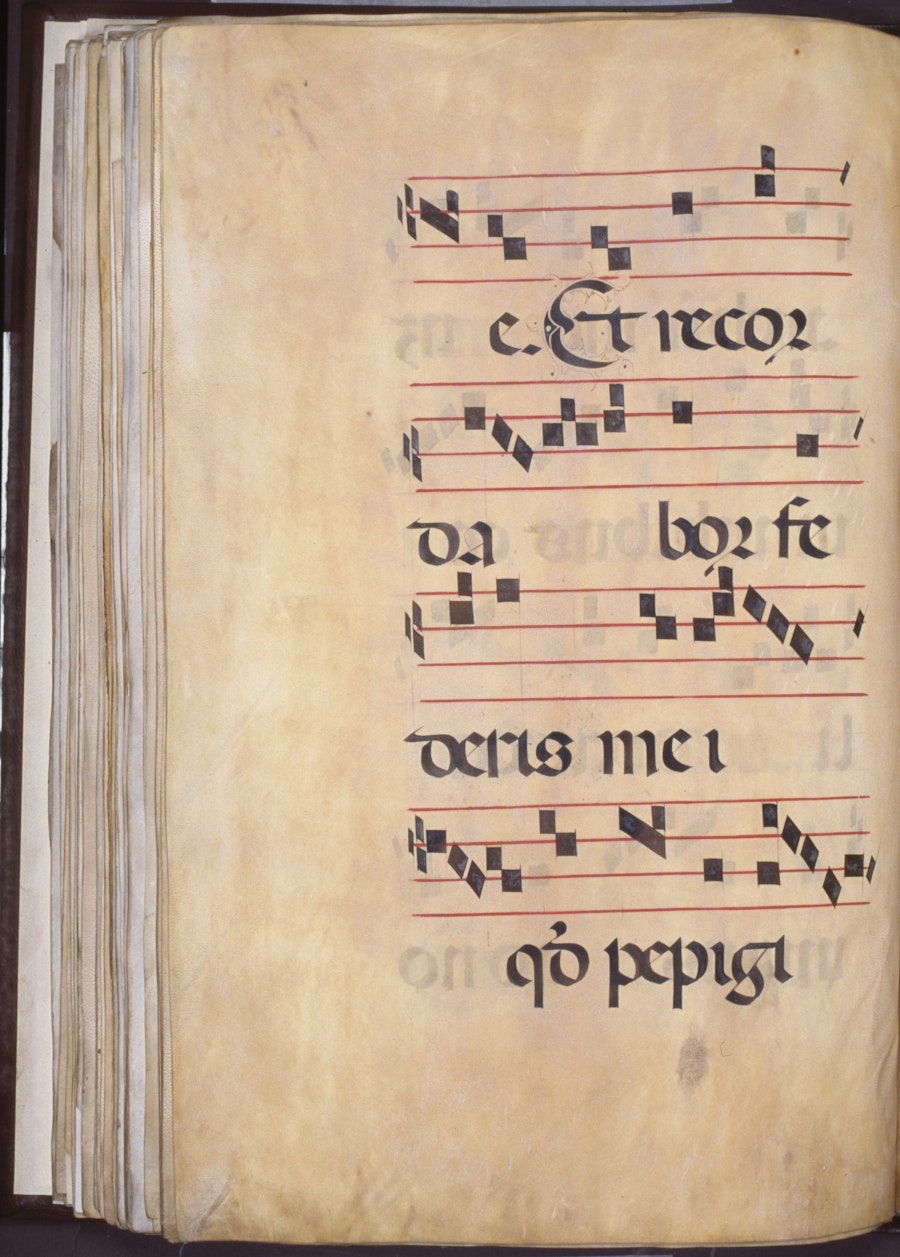 e. Et recor
da bor fe
deris mei
qd̄ pepigi